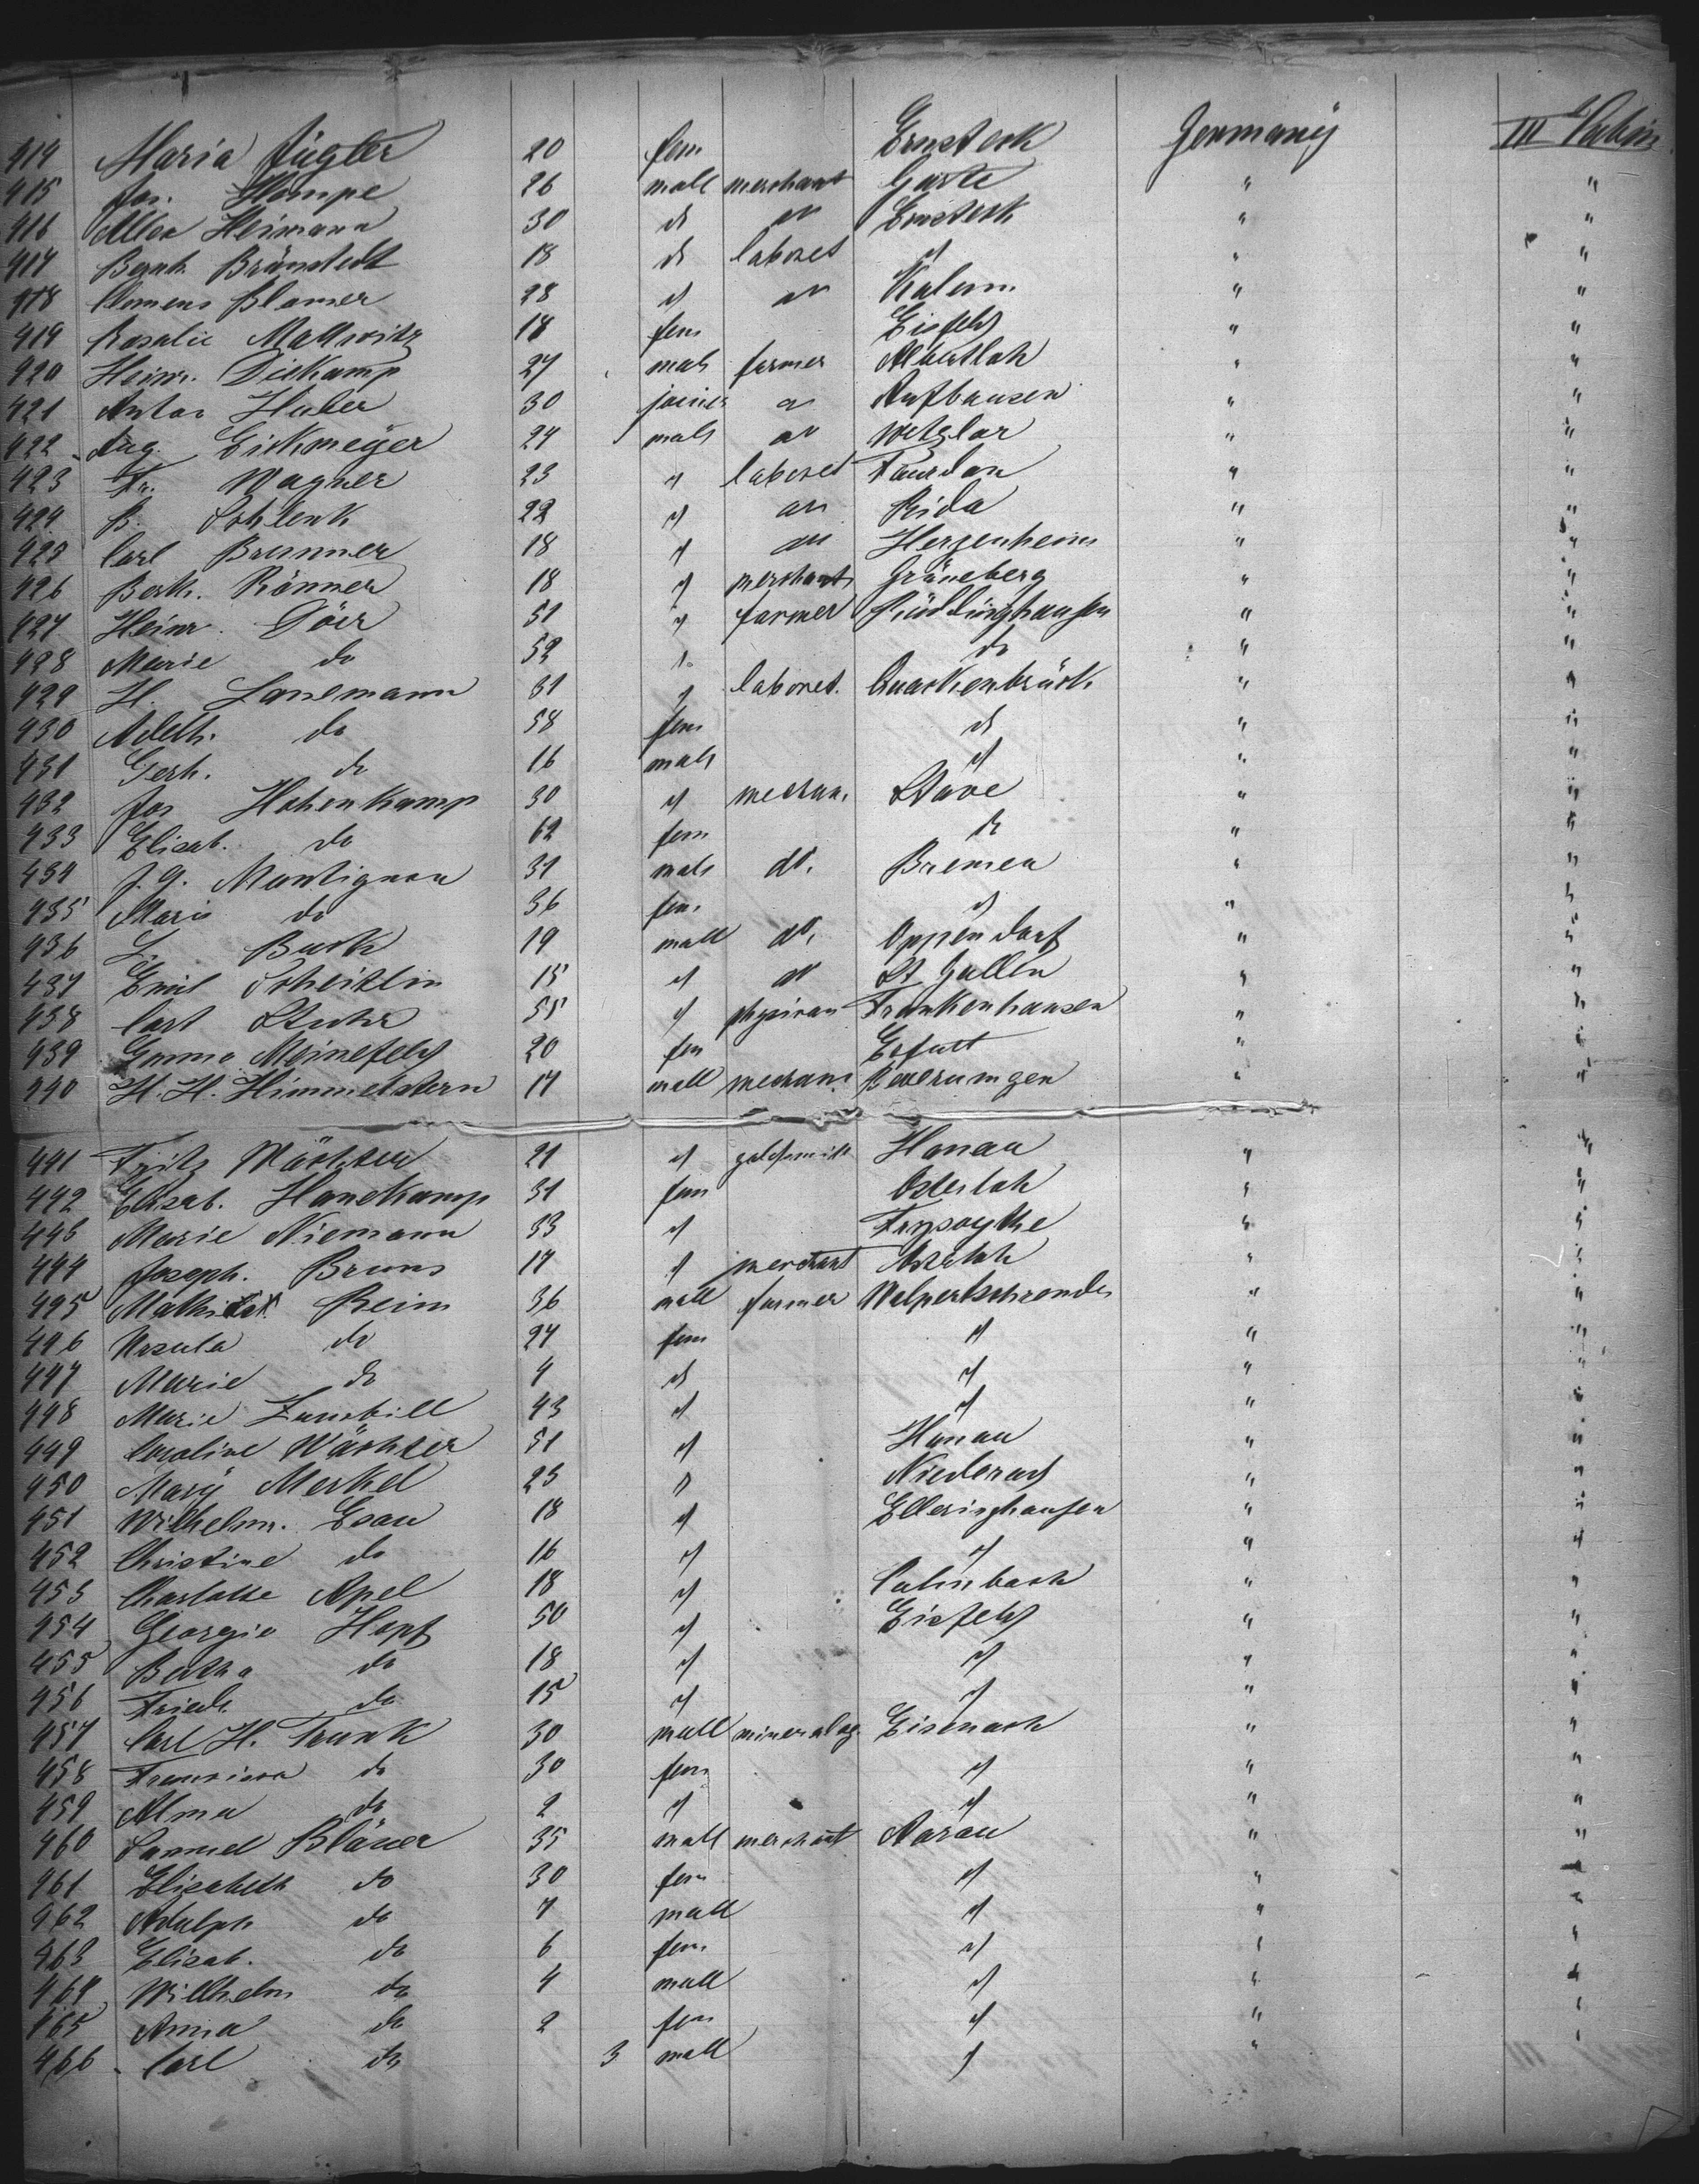 414 Maria Fügler 20 fem Emsteck Germany III Cabin
415 Jos. Hempe 26 male merchant Garte " "
416 Heimann 30 do do Emsteck " "
417 Bernh. Brämstedt 18 do laborer do " "
418 Clemens Blomer 28 do do " "
419 Rosalie Mallwitz 18 fem Eisfeld " "
420 Heinr. Dickamp 27 male farmer " "
421 Anton Huber 30 joiner do Aufhausen " "
422 Aug. Eickmeÿer 24 male do Wetzlar " "
423 Fr. Wagner 23 do laborer " "
424 B. Schlenk 22 do do " "
425 Carl Brunner 18 do do Herzenheim " "
426 Berth. Römmer 18 do merchant Gräneberg " "
427 Heinr. Dörr 51 do farmer " "
428 Marie do 52 do " "
429 H. Lanemann 31 do laborer. Quackenbrück " "
430 Adelh. do 58 fem do " "
431 Gerh. do 16 male do " "
432 Jos Hohenkamp 30 do mechan. Stave " "
433 Elisab. do 62 fem do " "
434 J. G. Montignon 31 male do. Bremen " "
435 Marie do 36 fem. do " "
436 L. Busch 19 male do. Oppendorf " "
437 Emil Scheitlin 15 do do St Gallen " "
438 Carl Stuhr 55 do physican Frankenhausen " "
439 Emma Meinefeld 20 fem Erfurt " "
440 H. H. Himmelstern 17 male mechan. Beverungen " "
441 Fritz Wächter 21 do goldsmith Hanau " "
442 Elisab. Hanekamp 31 fem Osterloh " "
443 Marie Niemann 33 do Frysoythe " "
444 Joseph. Bruns 17 do merchant " "
445 Reim 36 male farmer " "
446 Ursula do 24 fem do " "
447 Marie do 4 do do " "
448 Marie 43 do do " "
449 Caroline Wächter 51 do Hanau " "
450 Marÿ Merkel 23 do " "
451 Wilhelm. Esau 18 do Elleringhausen " "
452 Christine do 16 do do " "
453 Charlotte Apel 18 do " "
454 Georgie Hopf 50 do Eisfeld " "
455 Bertha do 18 do do " "
456 Friedr. do 15 do do " "
457 Carl H. Trunk 30 male mineralog. Eisenach " "
458 Francisca do 30 fem do " "
459 Alma do 2 do do " "
460 Samuel Bläuer 35 male merchant Aarau " "
461 Elisabeth do 30 fem do " "
462 Adolph do 7 male do " "
463 Elisab. do 6 fem. do " "
464 Willhelm do 4 male do " "
465 Anna do 2 fem do " "
466 Carl do 3 male do "